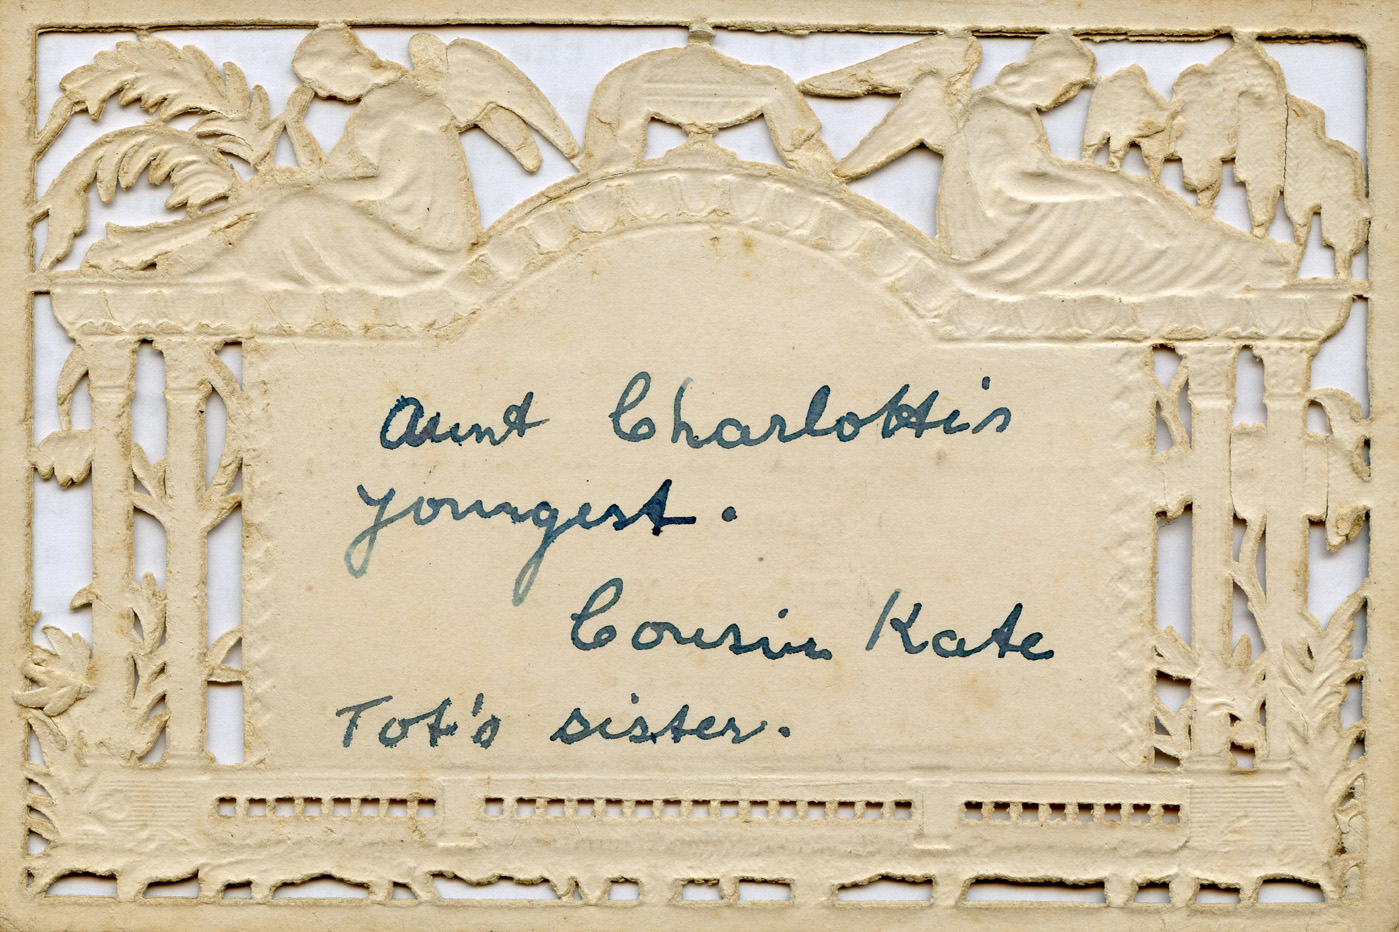 Aunt Charlottis
youngest.
Cousin Kate
Tot's sister.